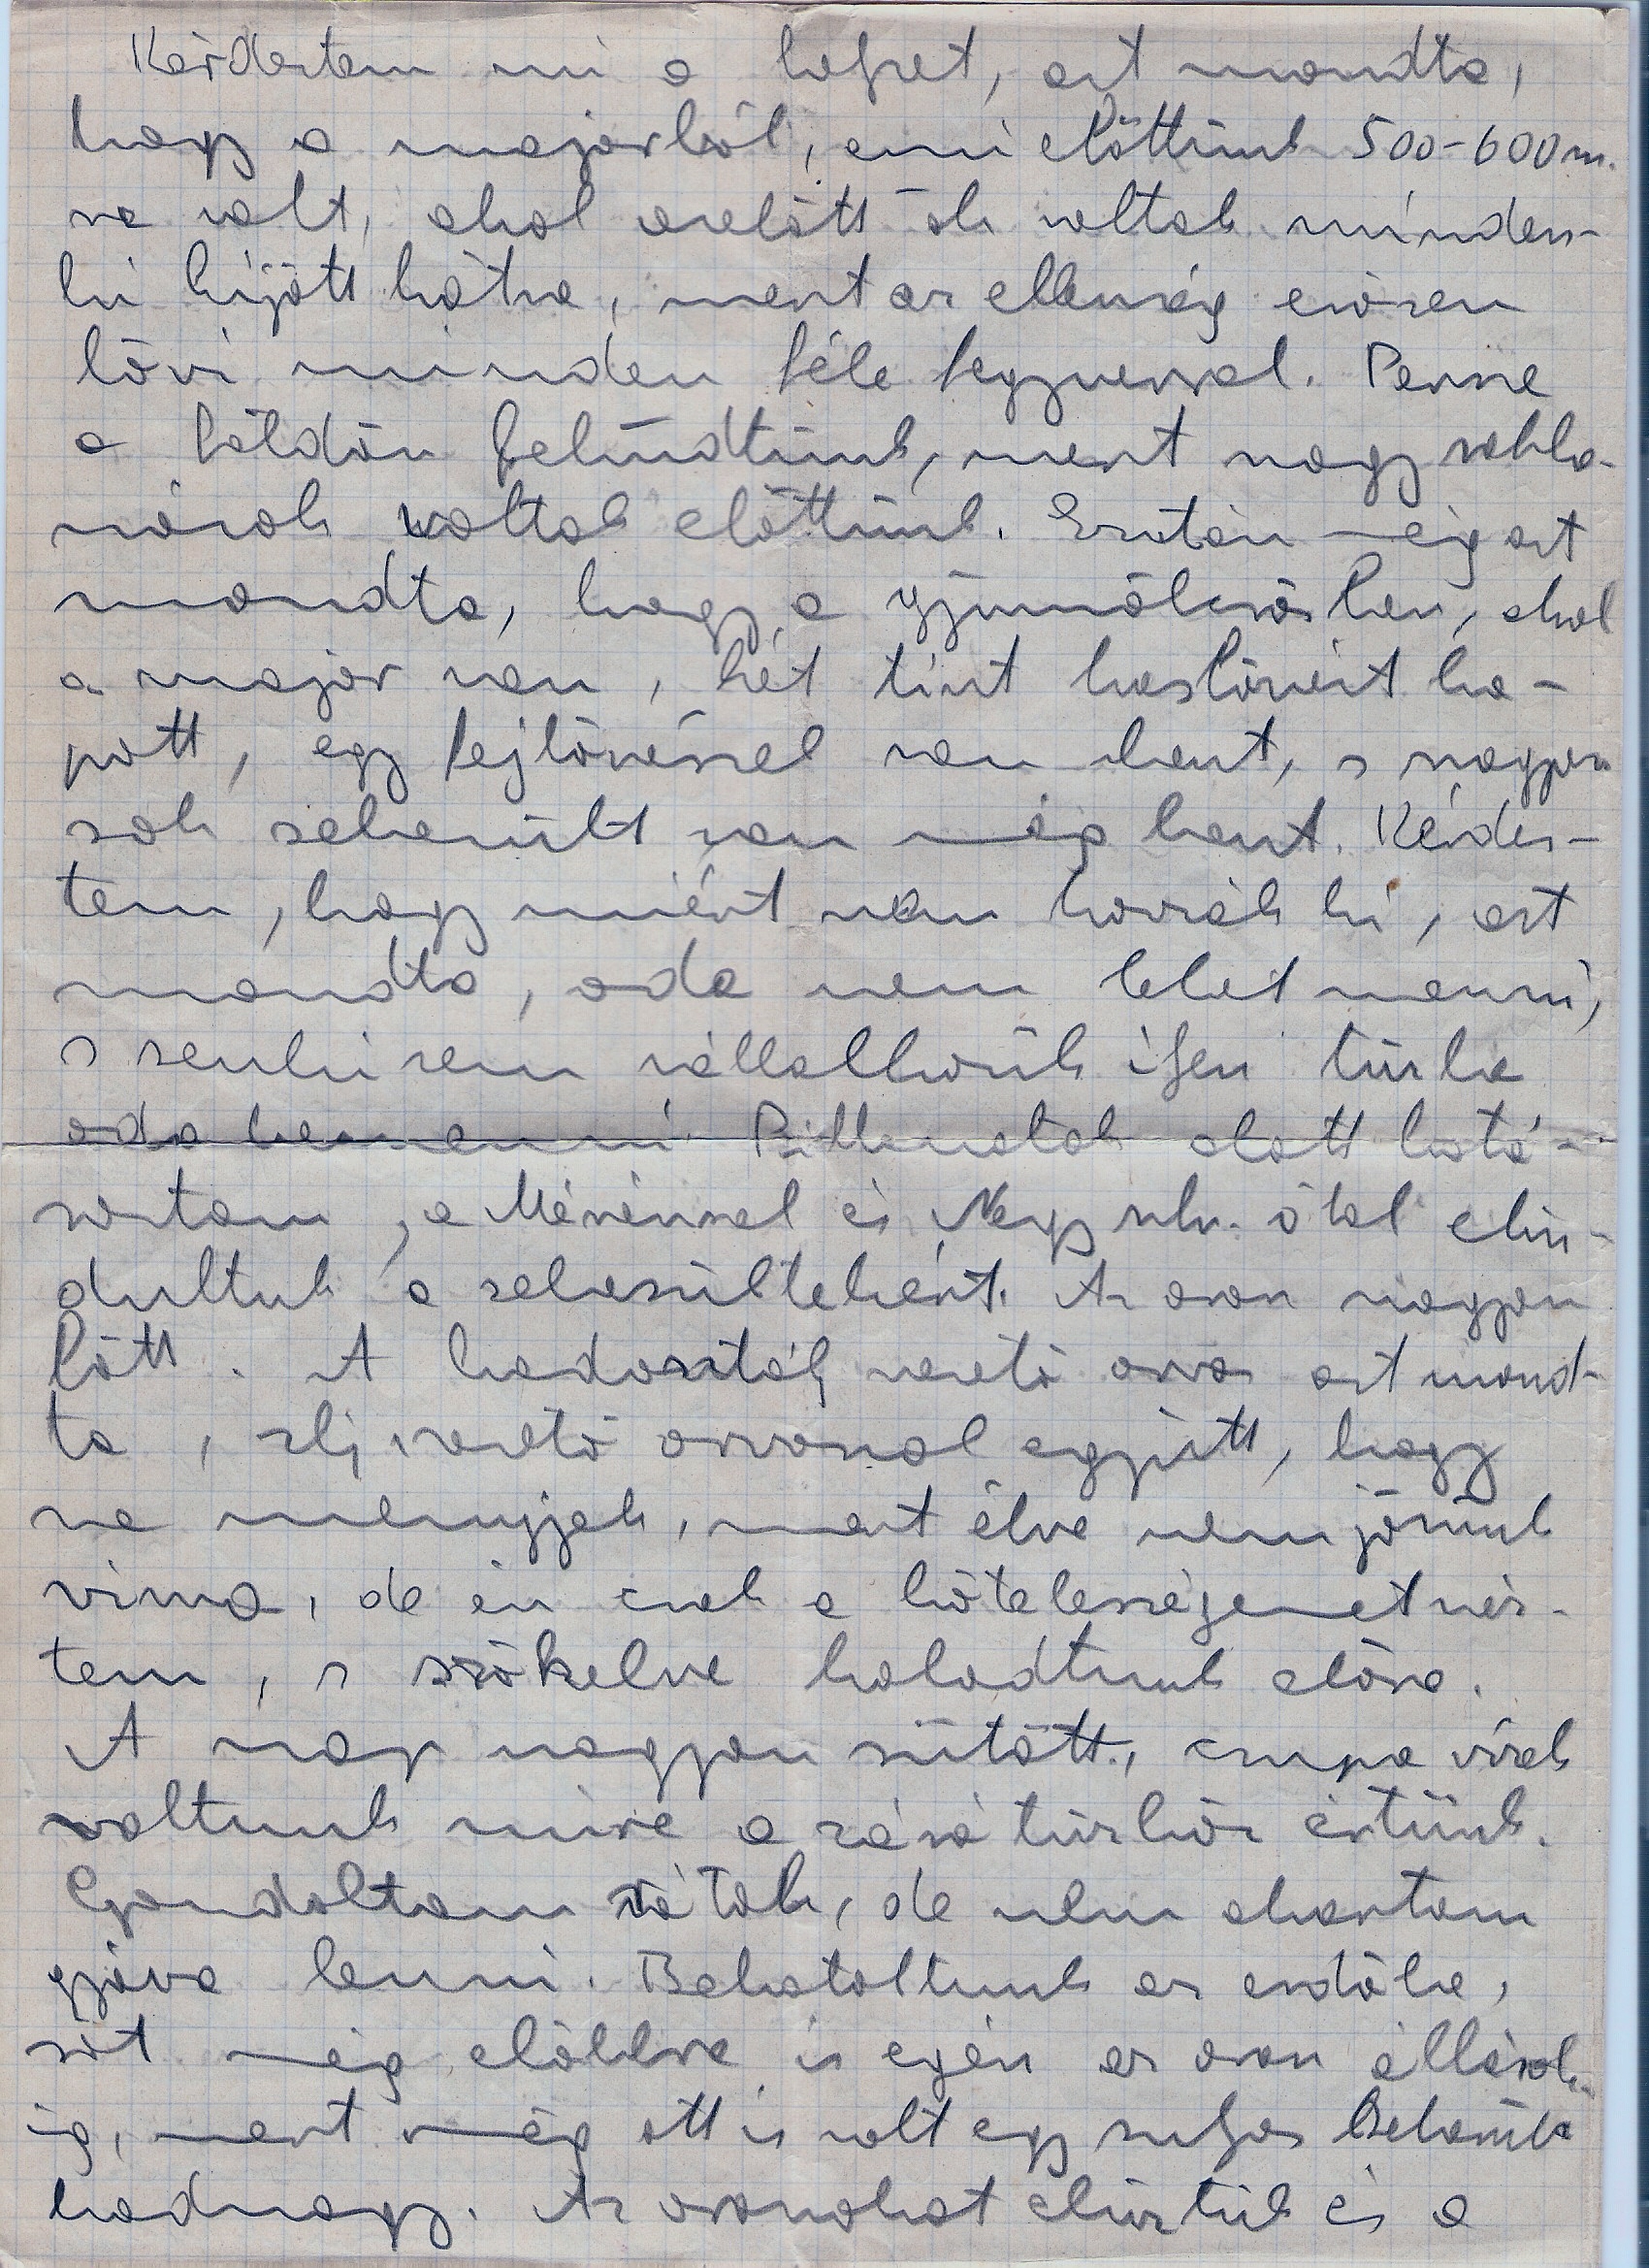 Kérdeztem mi a helyzet, azt mondta,
hogy a majorból, ami előttünk 500-600 m.
re volt, ahol azelőtt ők voltak minden-
ki kijött hátra, mert az ellenség erősen
lövi minden féle fegyverrel. Persze
a földön feküdtünk, mert nagy robba-
nások voltak előttünk. Ezután még azt
mondta, hogy a gyümölcsösben, ahol
a major van, két tiszt haslövést ka-
pott, egy fejlövéssel van bent, s nagyon
sok sebesült van még bent. Kérdez-
tem, hogy miért nem hozzák ki, azt
mondta, oda nem lehet menni,
s senki sem vállalkozik ilyen tűzbe
oda bemenni. Pillanatok alatt hatá-
roztam, a Mérénnel és Nagy szkv. útal elin-
dultunk a sebesültekért. Az orosz nagyon
lőtt. A hadosztály vezető orvos azt mond-
ta, zlj vezető orvossal együtt, hogy
ne menjek, mert élve nem jövünk
vissza, de én csak a kötelességemet néz-
tem, s szökelve haladtunk előre.
A nap nagyon sütött, csupa víz
voltunk mire a záró tűzhöz értünk.
Gondoltam rátok, de nem akartam
gyáva lenni. Behatoltunk az erdőbe,
sőt még előbbre is egészen az orosz állások-
ig, mert még ott is volt egy súlyos sebesült
hadnagy. Az oroszokat elűztük és a